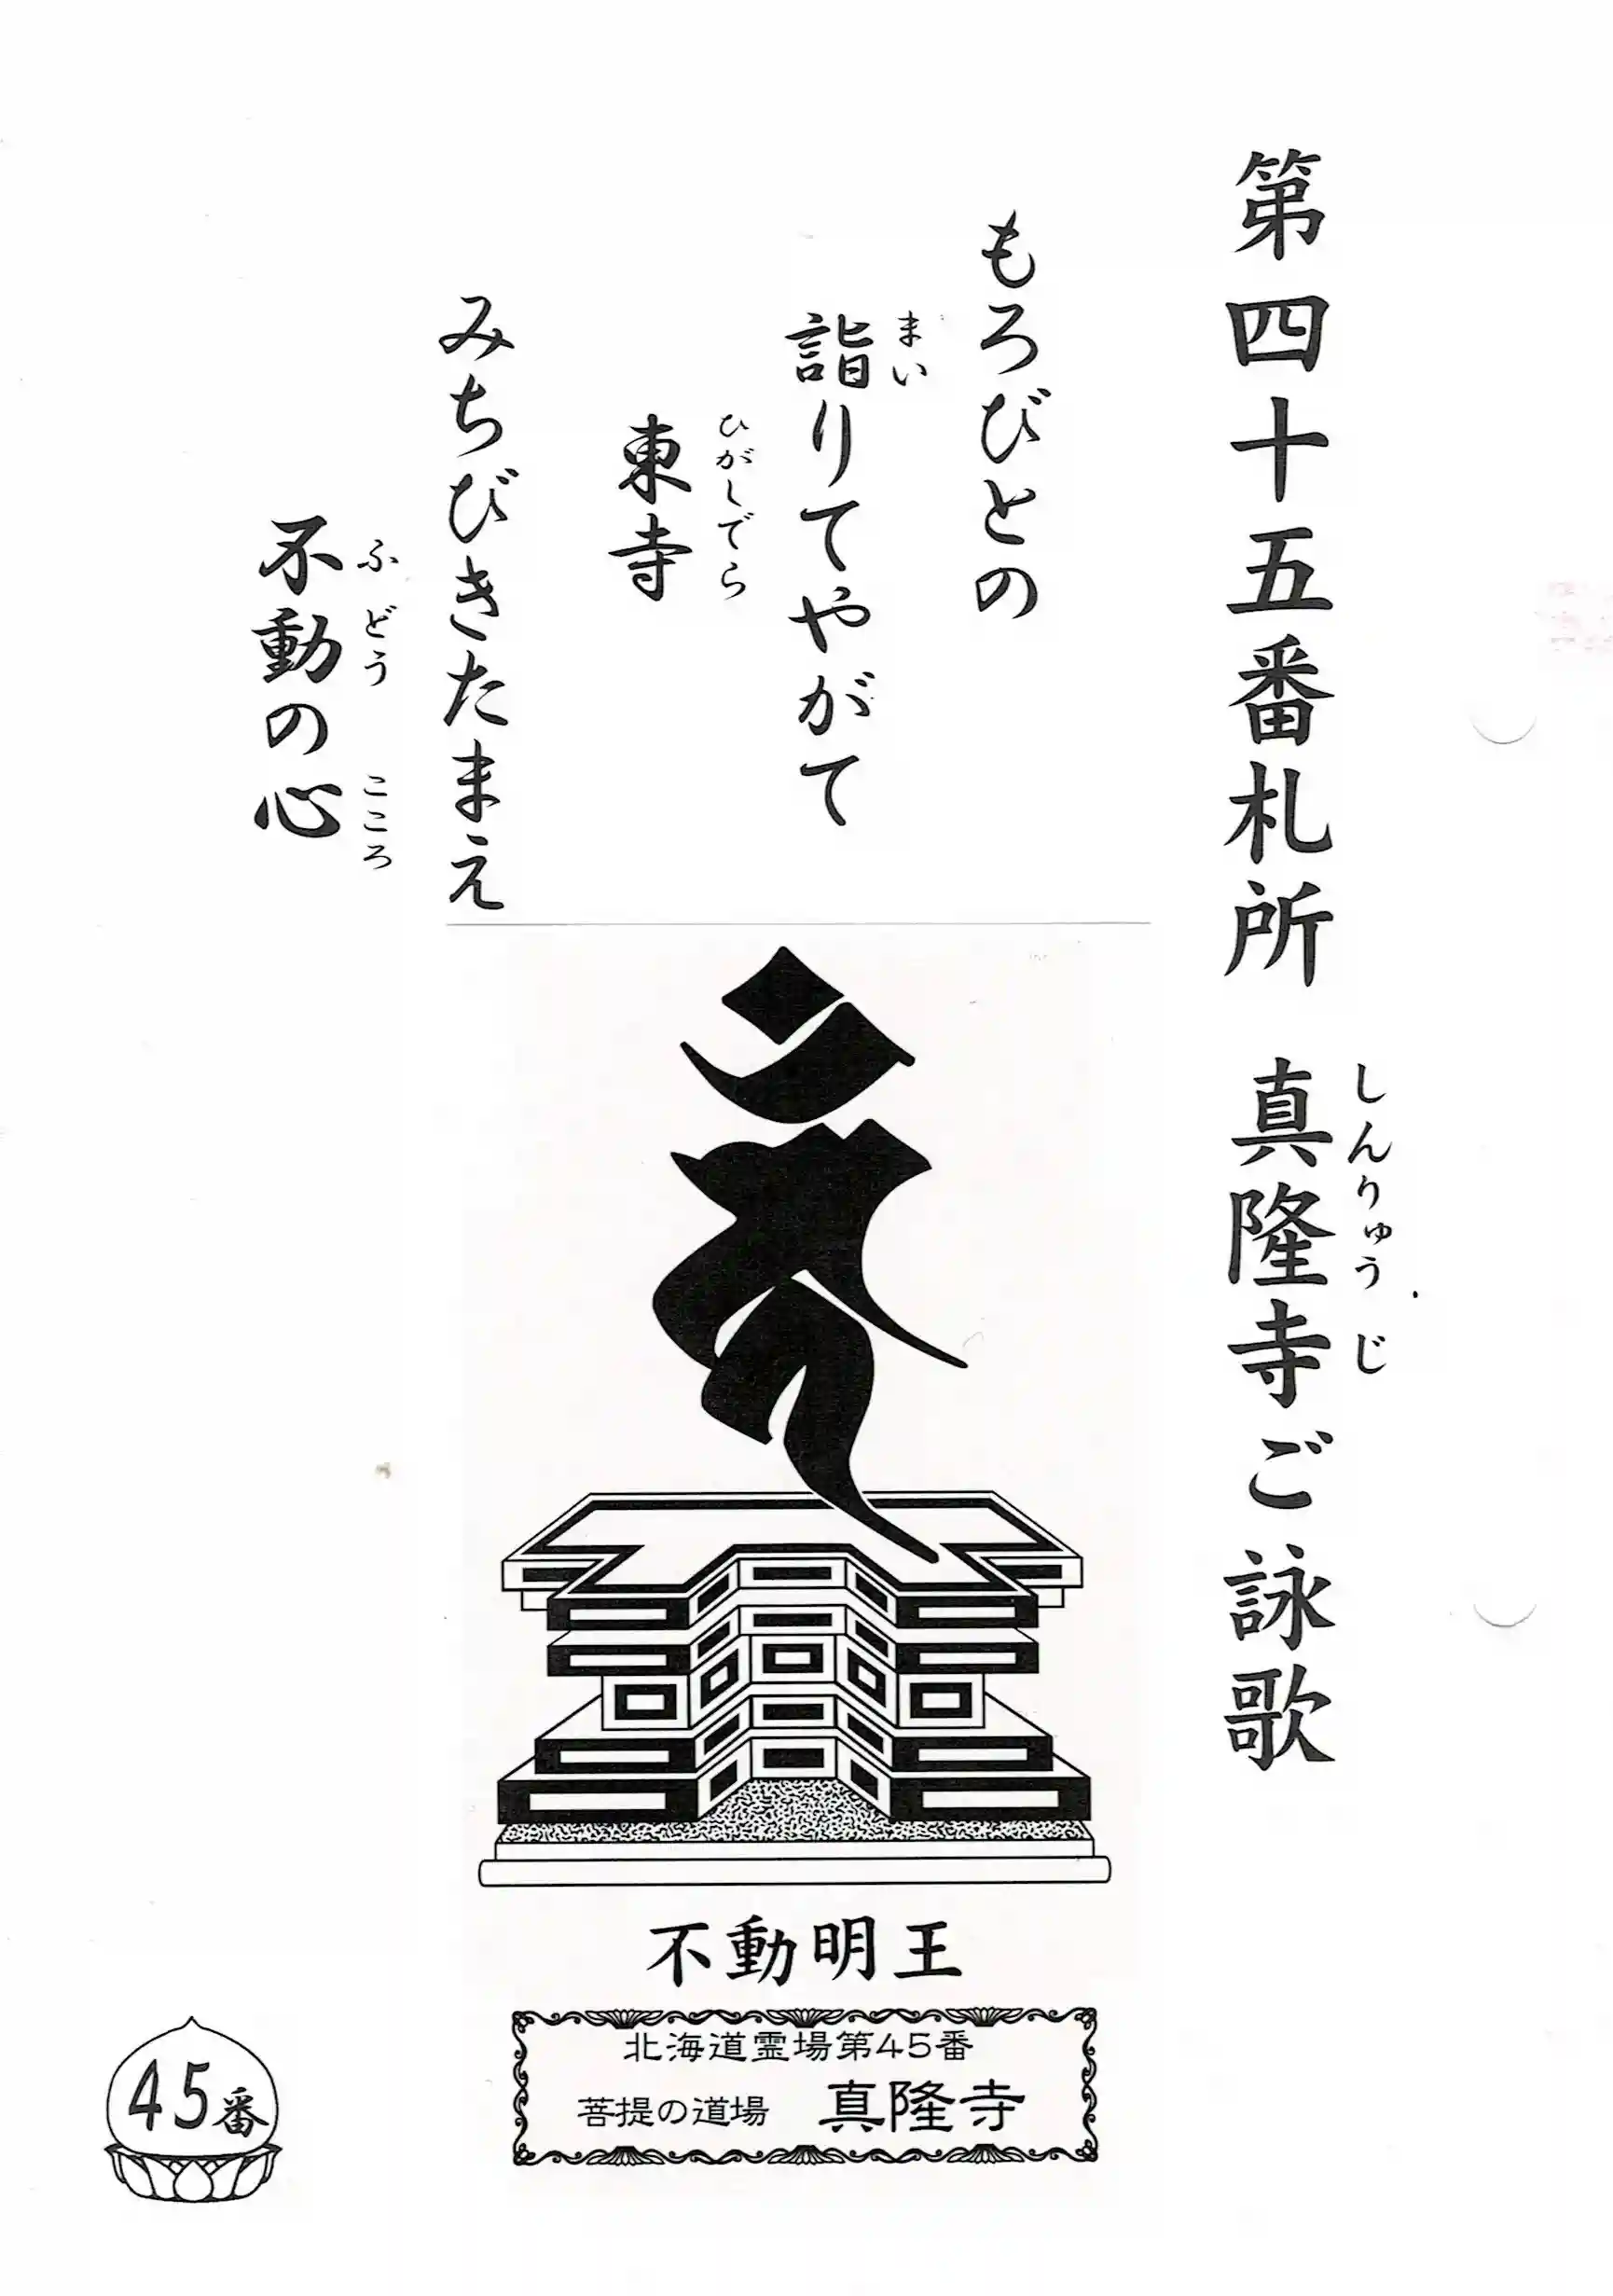 第四十五番札所 真隆寺ご詠歌
しんりゅうじ
もろびとの
詣りてやがて
まい
東寺
ひがしでら
みちびきたまえ
不動の心
ふどう こころ
不動明王
北海道霊場第45番
菩提の道場 真隆寺
45番